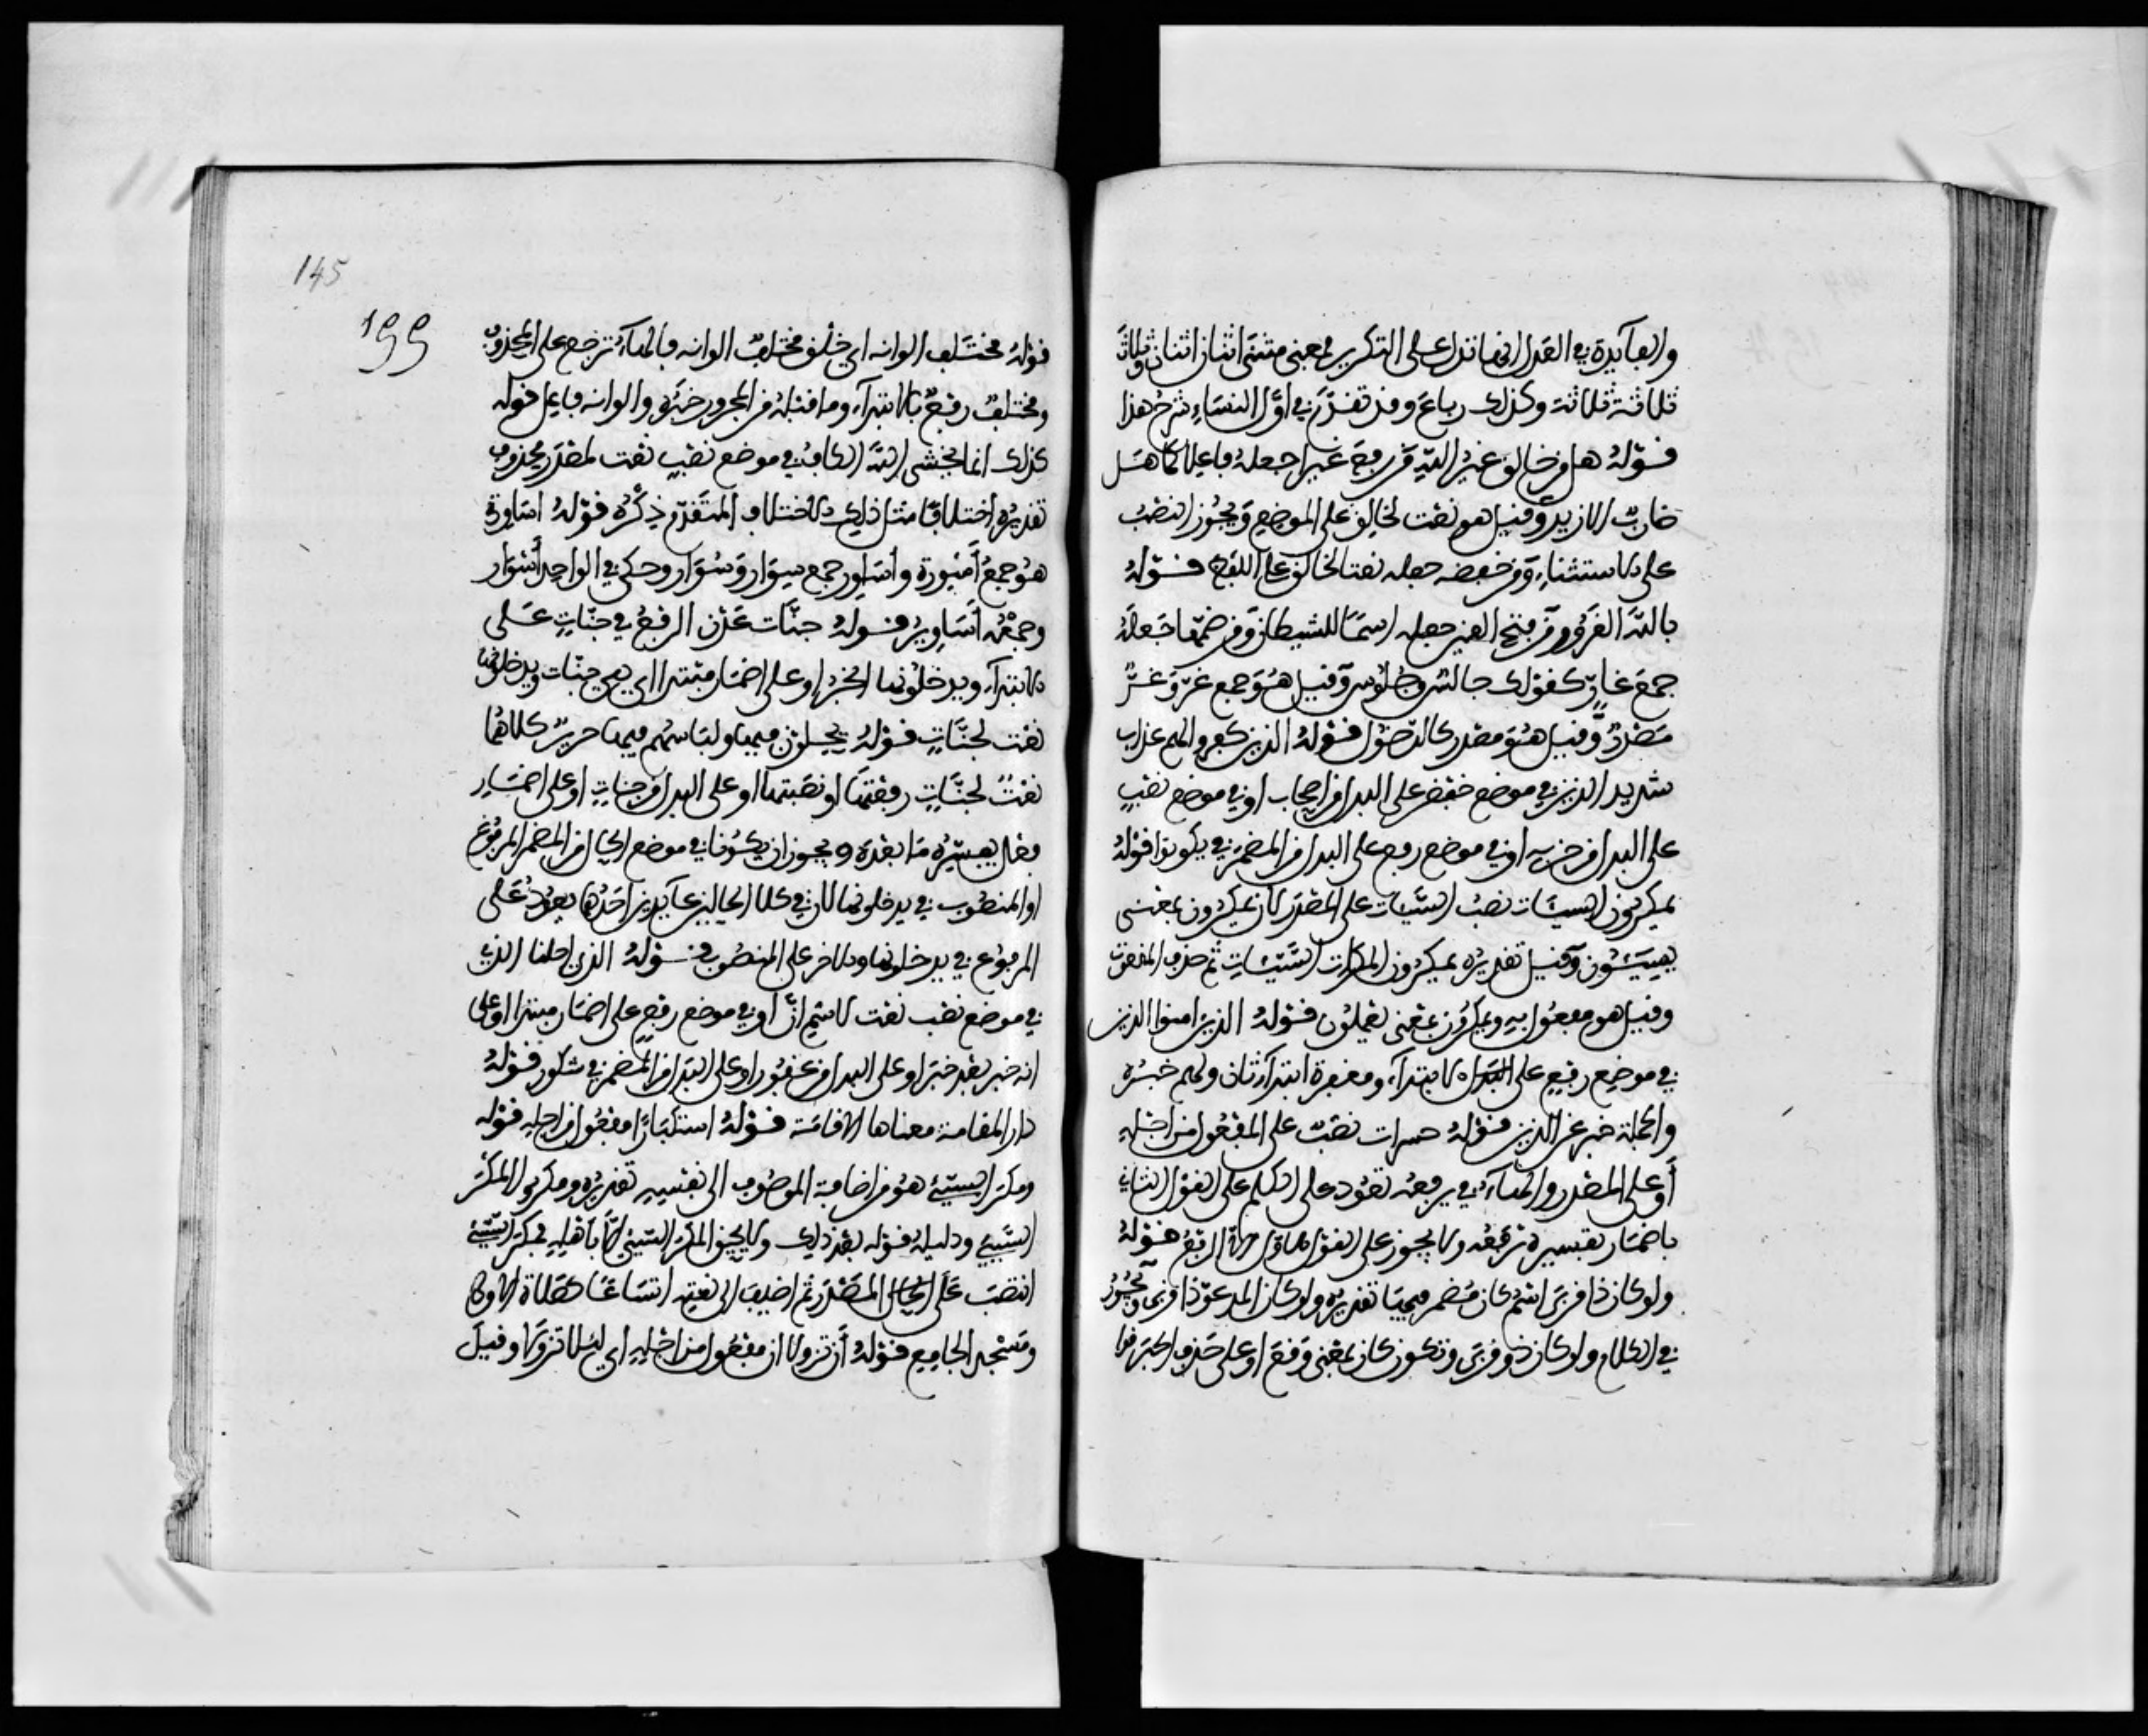 والفآيدة في العدل انها تدل على التكرير فمعنى مثنى اثنان اثنان وثلاث
ثلاثة ثلاثة وكذلك رباع وقد تقدّم في اوّل النساء شرح هذا
قوله هل من خالق غير الله من رفع غير جعله فاعلا كما هل
ضاربٌ الا زيد وقيل هو نعت لخالق على الموضع ويجوز النصب
على الاستثناء ومن خفضه جعله نعتا لخالق على اللفظ قوله
بالله الغرور من فتح الغين جعله اسمًا للشيطان ومن ضمّها جعله
جمع غارّ كقولك جالس وجلوس وقيل هو جمع غرّ وغرّ
مصدرٌ وقيل هو مصدر كالدخول قوله الذين كفروا لهم عذاب
شديد الذين في موضع خفض على البدل من اصحاب او في موضع نصب
على البدل من حزبه او في موضع رفع على البدل من المضمر في يكونوا قوله
يمكرون السيئات نصب السيّيات على المصدر لان يمكرون بمعنى
يسيئون وقيل تقديره يمكرون المكرات السّيّئات ثم حذف المنعوت
وقيل هو مفعول به ويمكرون بمعنى يعملون قوله الذين امنوا الذين
في موضع رفع على الابتدآء ومغفرة ابتدآء ثان ولهم خبره
والجملة خبر عن الذين قوله حسرات نصبٌ على المفعول من اجله
أو على المصدر والهاء في يرفعه تعود على الكلم على القول الثاني
باضمار تفسيره نرفعه ولا يجوز على القول الاول الا الرفع قوله
ولو كان ذا قربى اسم كان مضمر فيها تقديره ولو كان المدعوّ ذا قربى ويجوز
في الكلام ولو كان ذو قربى وتكون كان بمعنى وقع او على حذف الخبر
145
199
قوله مختلف الوانه اي خلق مختلفٌ الوانه فالهاء ترجع على المحذوف
ومختلفٌ رفعٌ بالابتدآء وما قبله من المجرور خبره والوانه فاعل قوله
كذلك انما يخشى الله الكاف في موضع نصب نعت لمصدر محذوف
تقديره اختلافا مثل ذلك الاختلاف المتقدّم ذكره قوله اساورة
هو جمع أسورة وأساور جمع سوار وسُوار وحكي في الواحد أسوار
وجمعه أساوير قوله جنّات عدن الرفع في جنّات على
الابتدآء ويدخلونها الخبر او على اضمار مبتدا اي هي جنّات ويدخلونها
نعت لجنّات قوله يحلون فيها ولباسهم فيها حريرٌ كلاهما
نعتٌ لجنّات رفعتها او نصبتها او على البدل من جنات او على اضمار
فعل يفسّره ما بعده ويجوز ان يكونا في موضع الحال من المضمر المرفوع
او المنصوب في يدخلونها لان في كلا الحالين عآيدين احدهما يعود على
المرفوع في يدخلونها والاخر على المنصوب قوله الذي احلنا الذي
في موضع نصب نعت لاسم انّ او في موضع رفع على اضمار مبتدا او على
انه خبر بعد خبر او على البدل من غفور او على البدل من المضمر في شكور قوله
دار المقامة معناها الاقامة قوله استكبارًا مفعول من اجله قوله
ومكر السيّئ هو من اضافة الموصوف الى نفسه تقديره ومكروا المكر
السّيئ ودليله قوله بعد ذلك ولا يحيق المكر السّيئ الّا باهله فمكر السّيئ
انتصب على المصدر ثم اضيف الى نعته اتساعًا كصلاة الاولى
ومسجد الجامع قوله أن تزولا ان مفعول من اجله اي ليلا تزولا وقيل